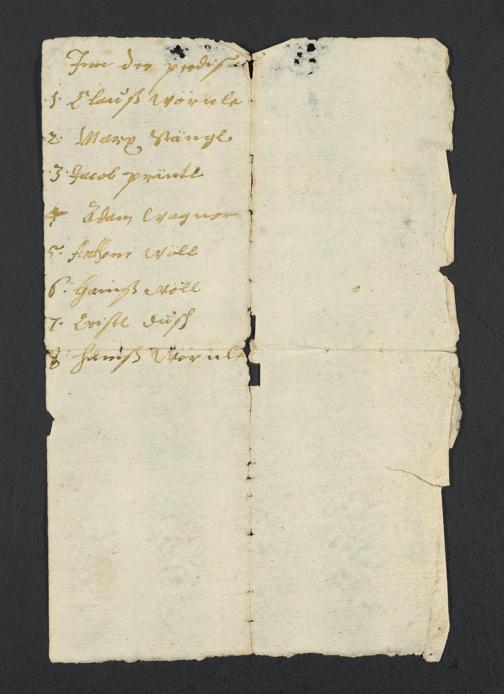 Inn der
1. Clauß Wörnle
2. Marx Stängl
3. Jacob präntl
4 Adam Wagner
5. Anthoni Nöll
6. Hannß Nöll
7. Cristl
8 Hannß Wörnle